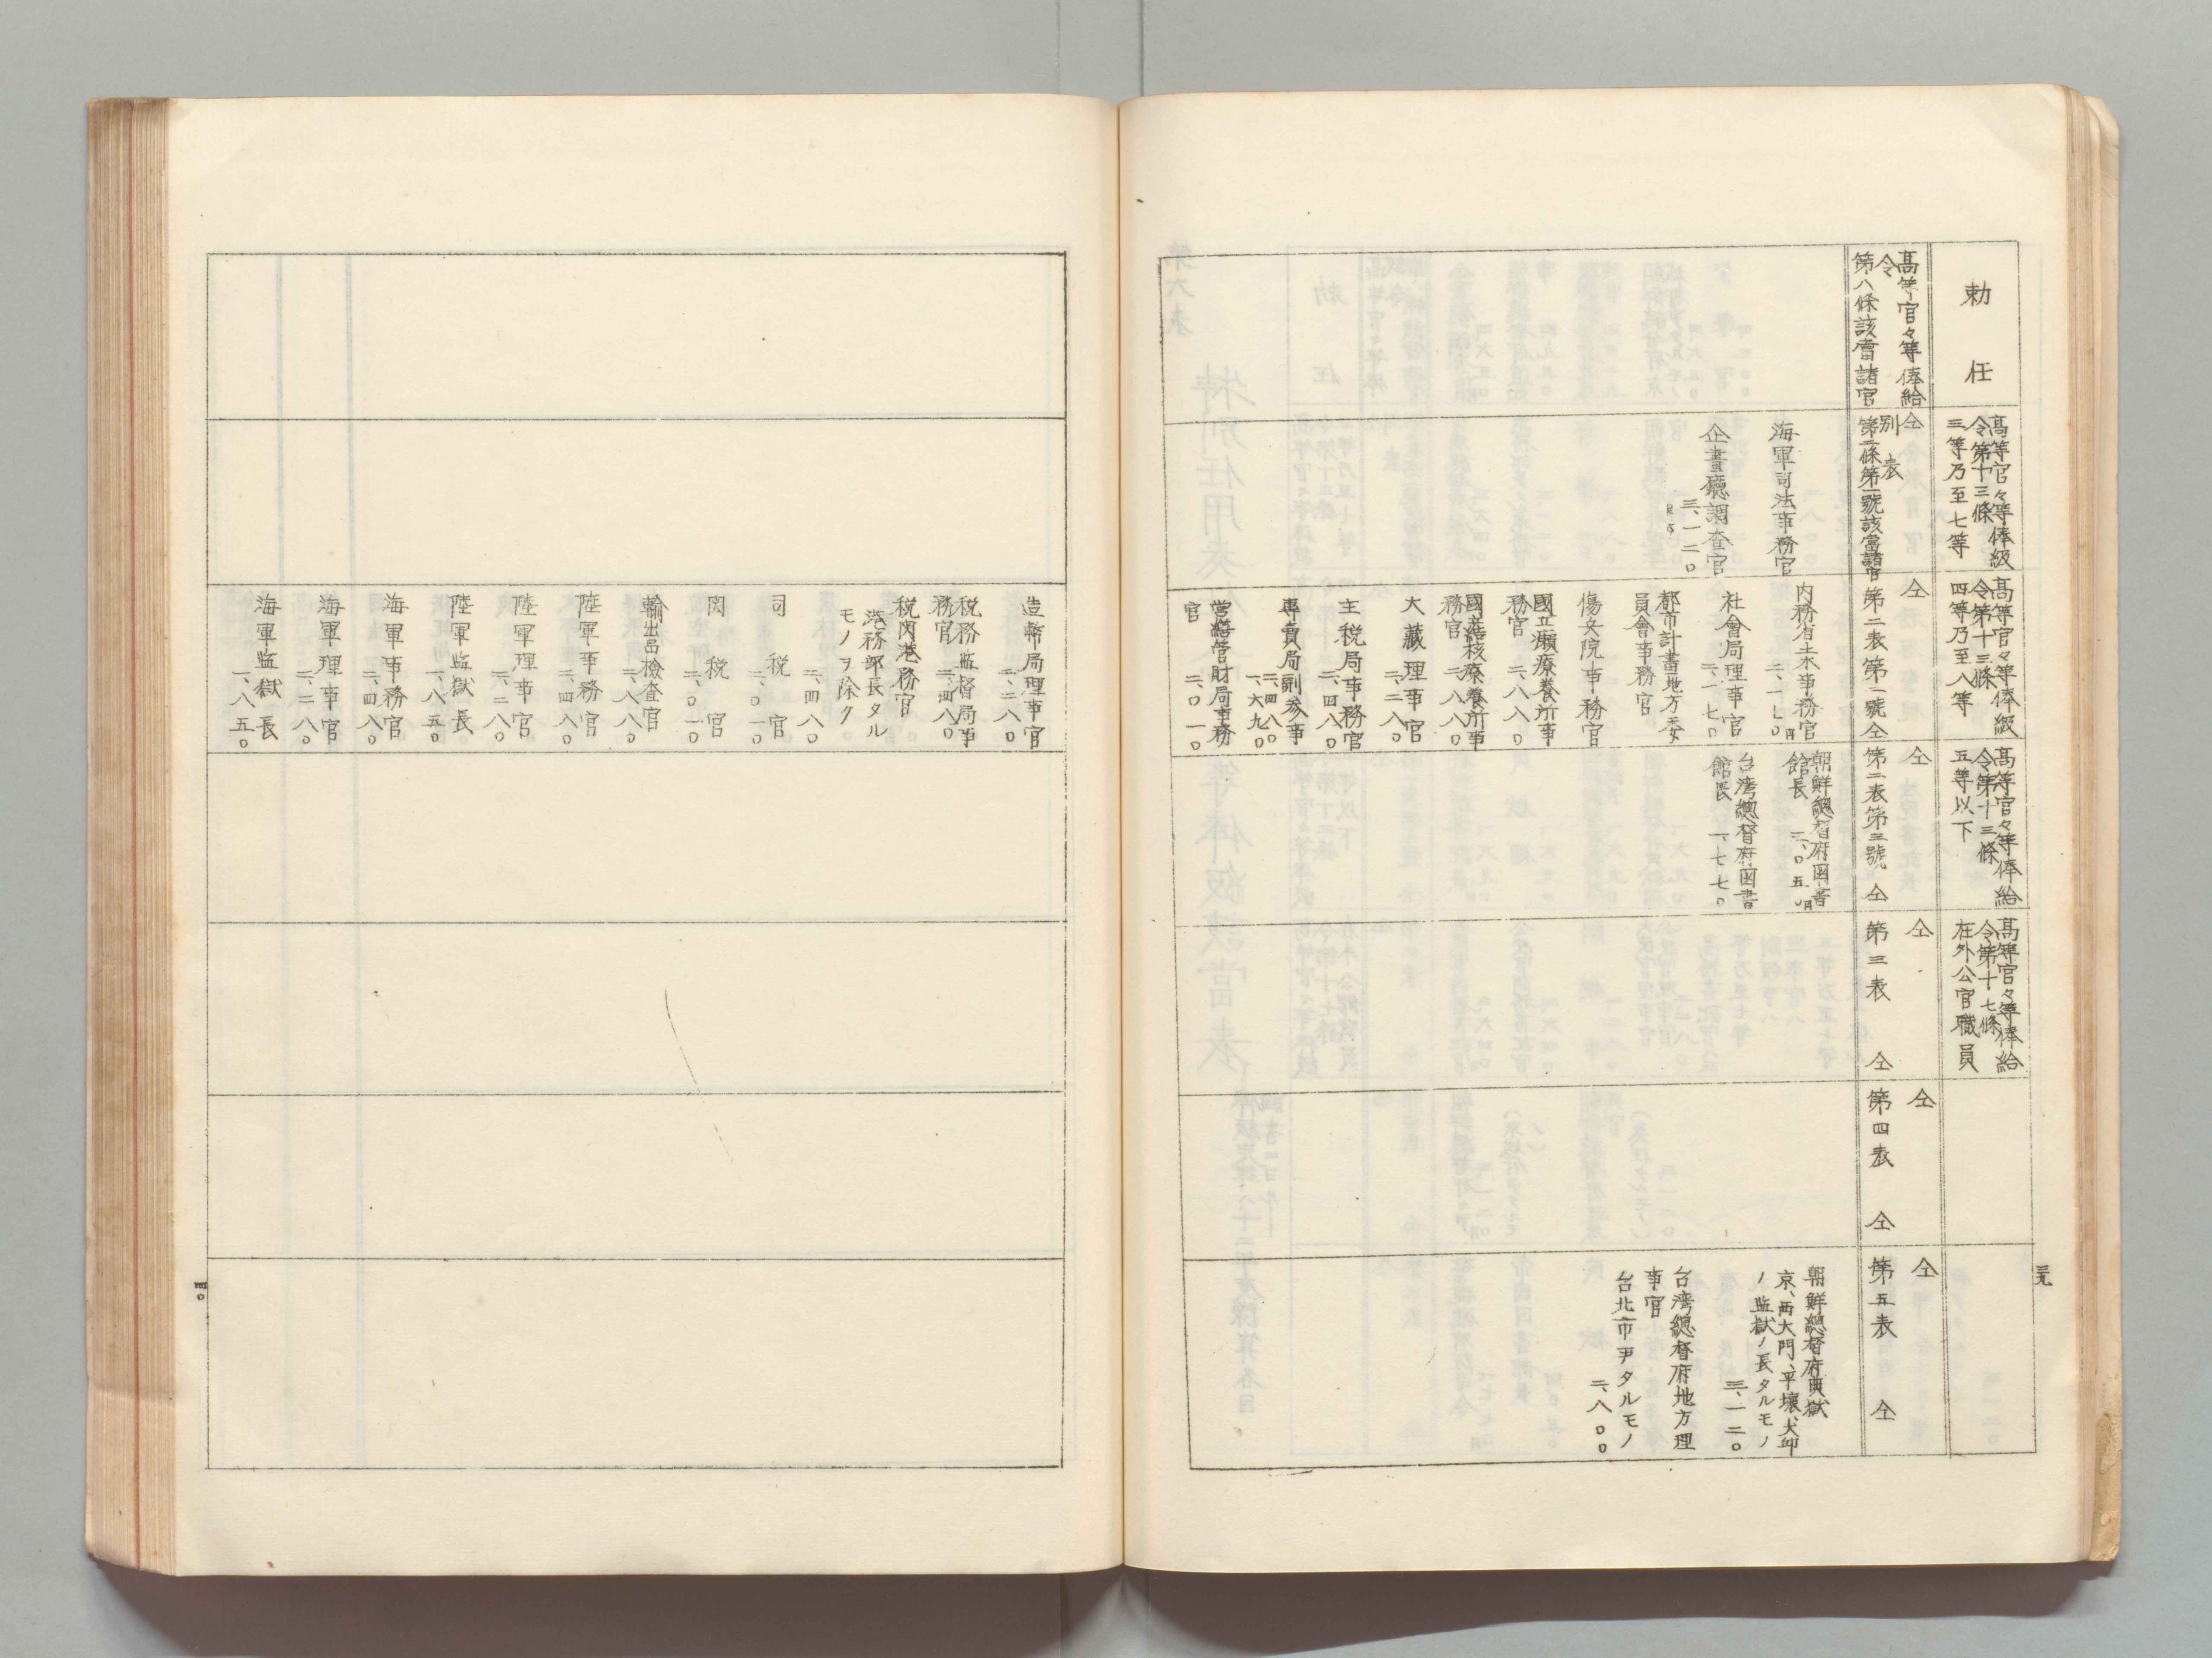 三九
勅任
高等官々等俸級
令第十三條
三等乃至七等
高等官々等俸級
令第十三條
四等乃至八等
高等官々等俸給
令第十三條
五等以下
高等官々等俸給
令第十七條
在外公官職員
高等官々等俸給
令
第八條該當諸官
仝
別表
第二條第一號該當諸官
仝
第二表第二號仝
仝
第二表第三號仝
仝
第三表 仝
仝
第四表 仝
仝
第五表 仝
海軍司法事務官
企畫廳調査官
三、一二〇
内務省土木事務官
二、一七〇円
社會局理事官
二、一七〇
都市計畫地方委
員會事務官
傷兵院事務官
國立癩療養所事
務官 二、八八〇
國立結核療養所事
務官 二、八八〇
大藏理事官
二、二八〇
主税局事務官
二、四八〇
專賣局副参事
二、四八〇
一、六九〇
営繕管財局事務
官 二、〇一〇
朝鮮總督府図書
館長 二、〇五〇円
台湾總督府図書
館長 一、七七〇
朝鮮總督府典獄
京、西大門、平壌、大邱
ノ監獄ノ長タルモノ
三、一二〇
台湾總督府地方理
事官
台北市尹タルモノ
二、八〇〇
造幣局理事官
二、二八〇
税務監督局事
務官 二、四八〇
税関港務官
港務部長タル
モノヲ除ク
二、四八〇
司税官
二、〇一〇
関税官
二、〇一〇
輸出品檢査官
二、八八〇
陸軍事務官
二、四八〇
陸軍理事官
二、二八〇
陸軍監獄長
一、八五〇
海軍事務官
二、四八〇
海軍理事官
二、二八〇
海軍監獄長
一、八五〇
四〇